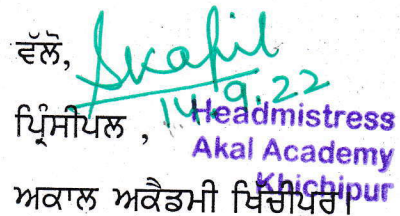 ਵੱਲੋ,
14.9.22
Headmistress
ਪ੍ਰਿੰਸੀਪਲ ,
Akal Academy
Khichipur
ਅਕਾਲ ਅਕੈਡਮੀ ਖਿੱਚੀਪੁਰ।